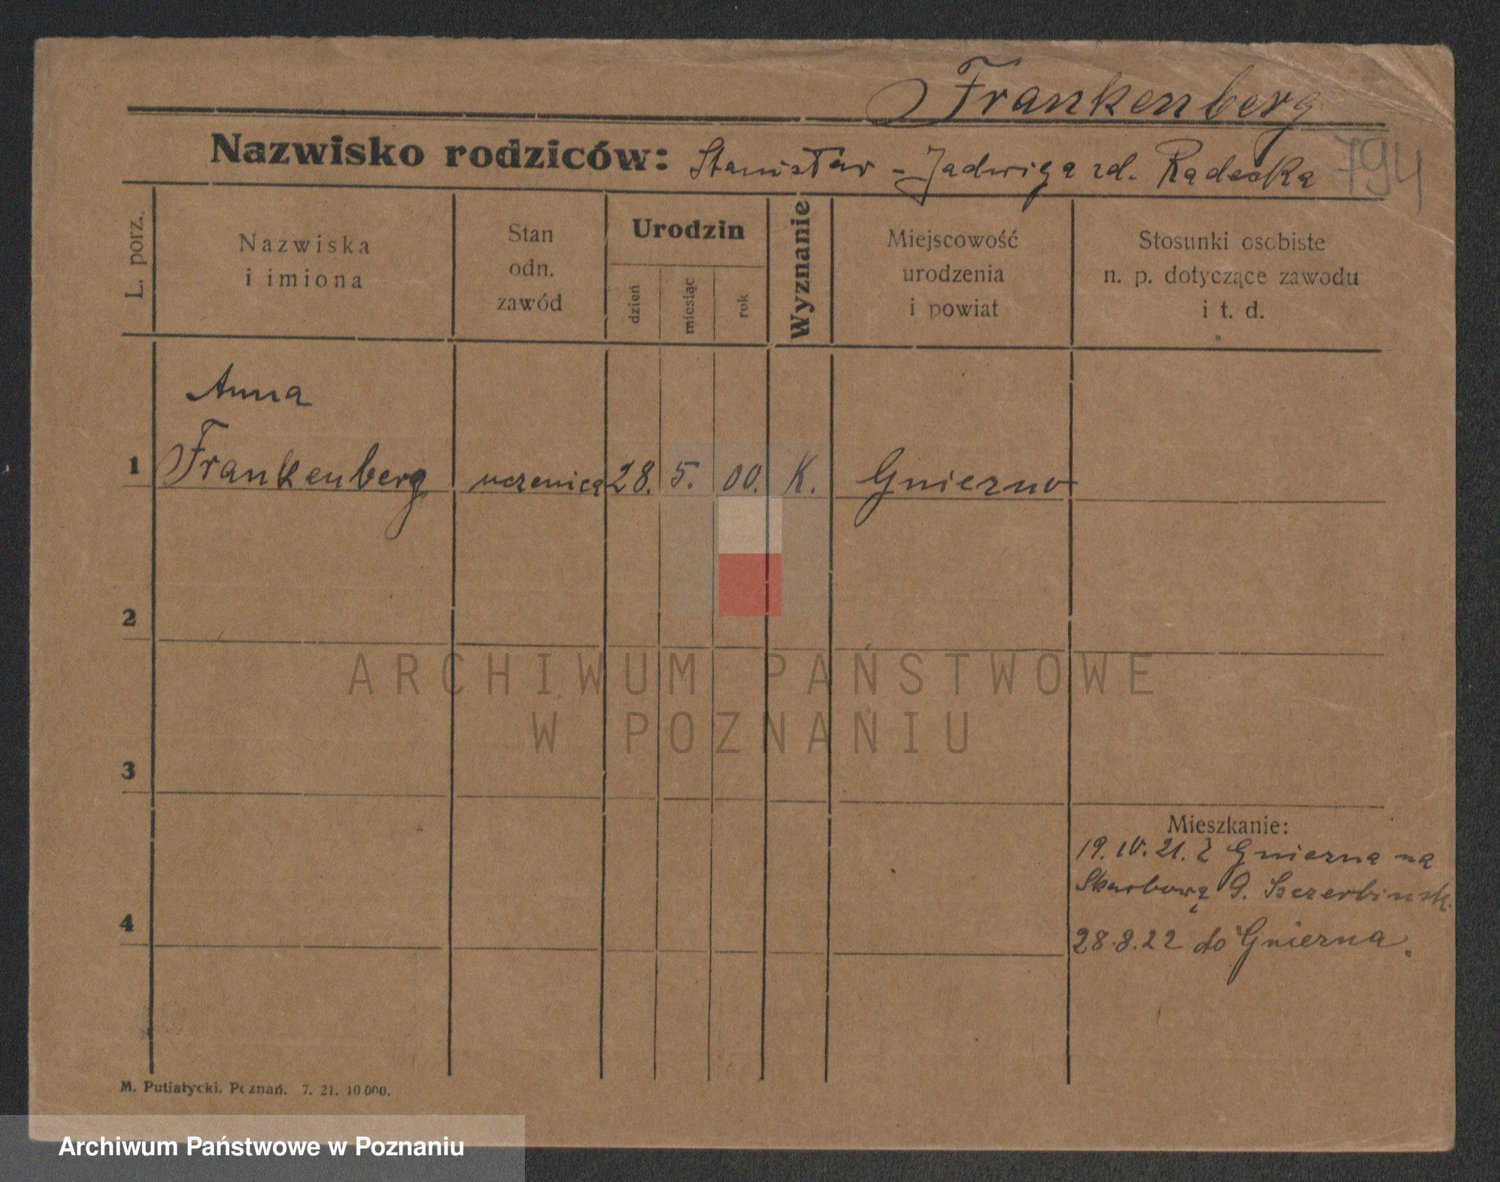 Frankenberg
Nazwisko rodziców: Stanisław - Jadwiga zd. Radecka 794
L. porz.
Nazwiska
i imiona
Stan
odn.
zawód
Urodzin
dzień
miesiąc
rok
Wyznanie
Miejscowość
urodzenia
i powiat
Stosunki osobiste
n. p. dotyczące zawodu
i t. d.
Anna
1 Frankenberg uczenica 28. 5. 00. K. Gniezno
2
ARCHIWUM PAŃSTWOWE
W POZNANIU
3
Mieszkanie:
19. IV. 21. Z Gniezna na
Skarbową 9. Szczerbińsk.
4
28.8.22 do Gniezna.
M. Putiatycki. Poznań. 7. 21. 10 000.
Archiwum Państwowe w Poznaniu